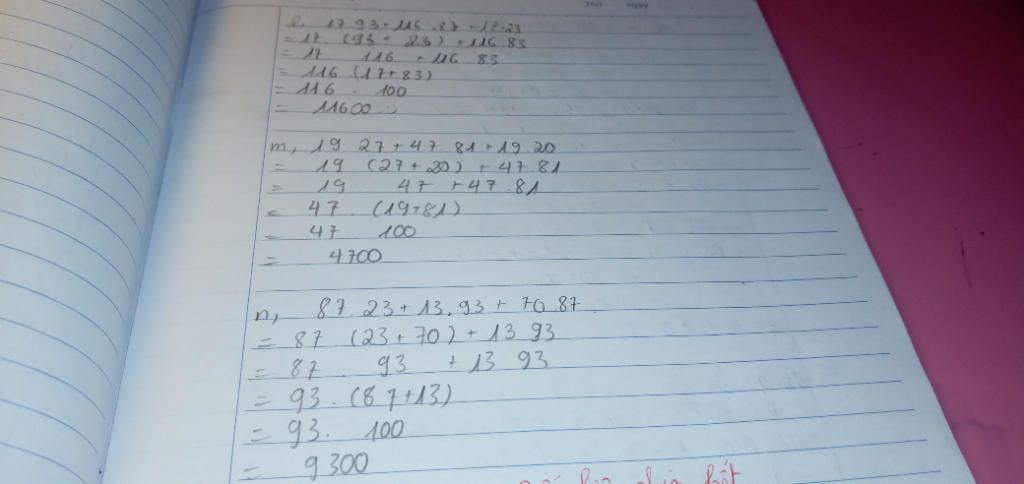 l, 17 93 + 116 . 83 + 17.23
= 17 . (93 + 23) + 116.83
= 17 116 + 116 . 83
= 116 (17+83)
= 116 . 100
= 11600
m, 19 27 + 47 81 + 19 20
= 19 (27 + 20) + 47 81
= 19 47 + 47 . 81
= 47 . (19+81)
= 47 100
= 4700
n, 87 23 + 13.93 + 70.87
= 87 (23 + 70) + 13 93
= 87 93 + 13 93
= 93 . (87+13)
= 93 . 100
= 9300
hết